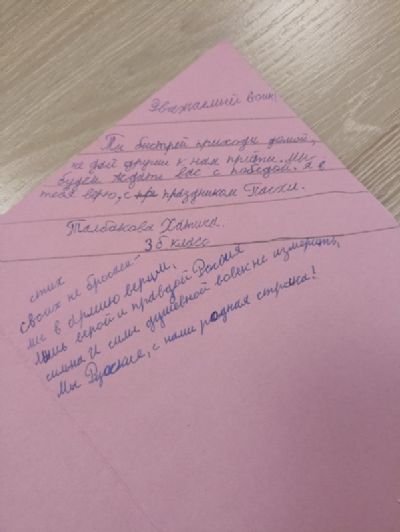 Уважаемый воин!
Ты быстрей приходи домой,
не дай другим к нам прийти. Мы
будем ждать вас с победой. Я в
тебя верю, с праздником Пасхи.
Талбакова
3б класс
стих
своих не бросает
мы в армию верим,
лишь верой и правдой Россия
сильна. И силы душевной вовек не измерить,
Мы Руские, с нами родная страна!